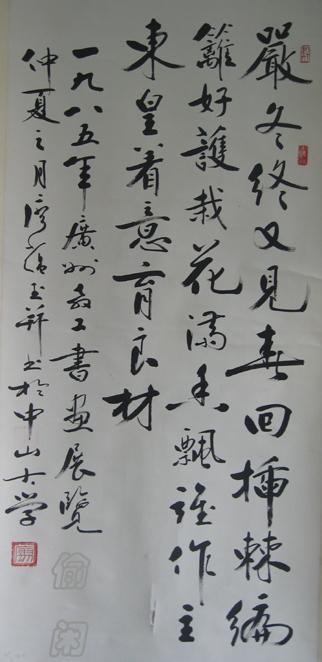 嚴冬終又見春回插棘編
籬好護栽花滿香飄誰作主
東皇着意育良材
一九八五年廣州教工書畫展覽
仲夏之月並書於中山大学
偷闲